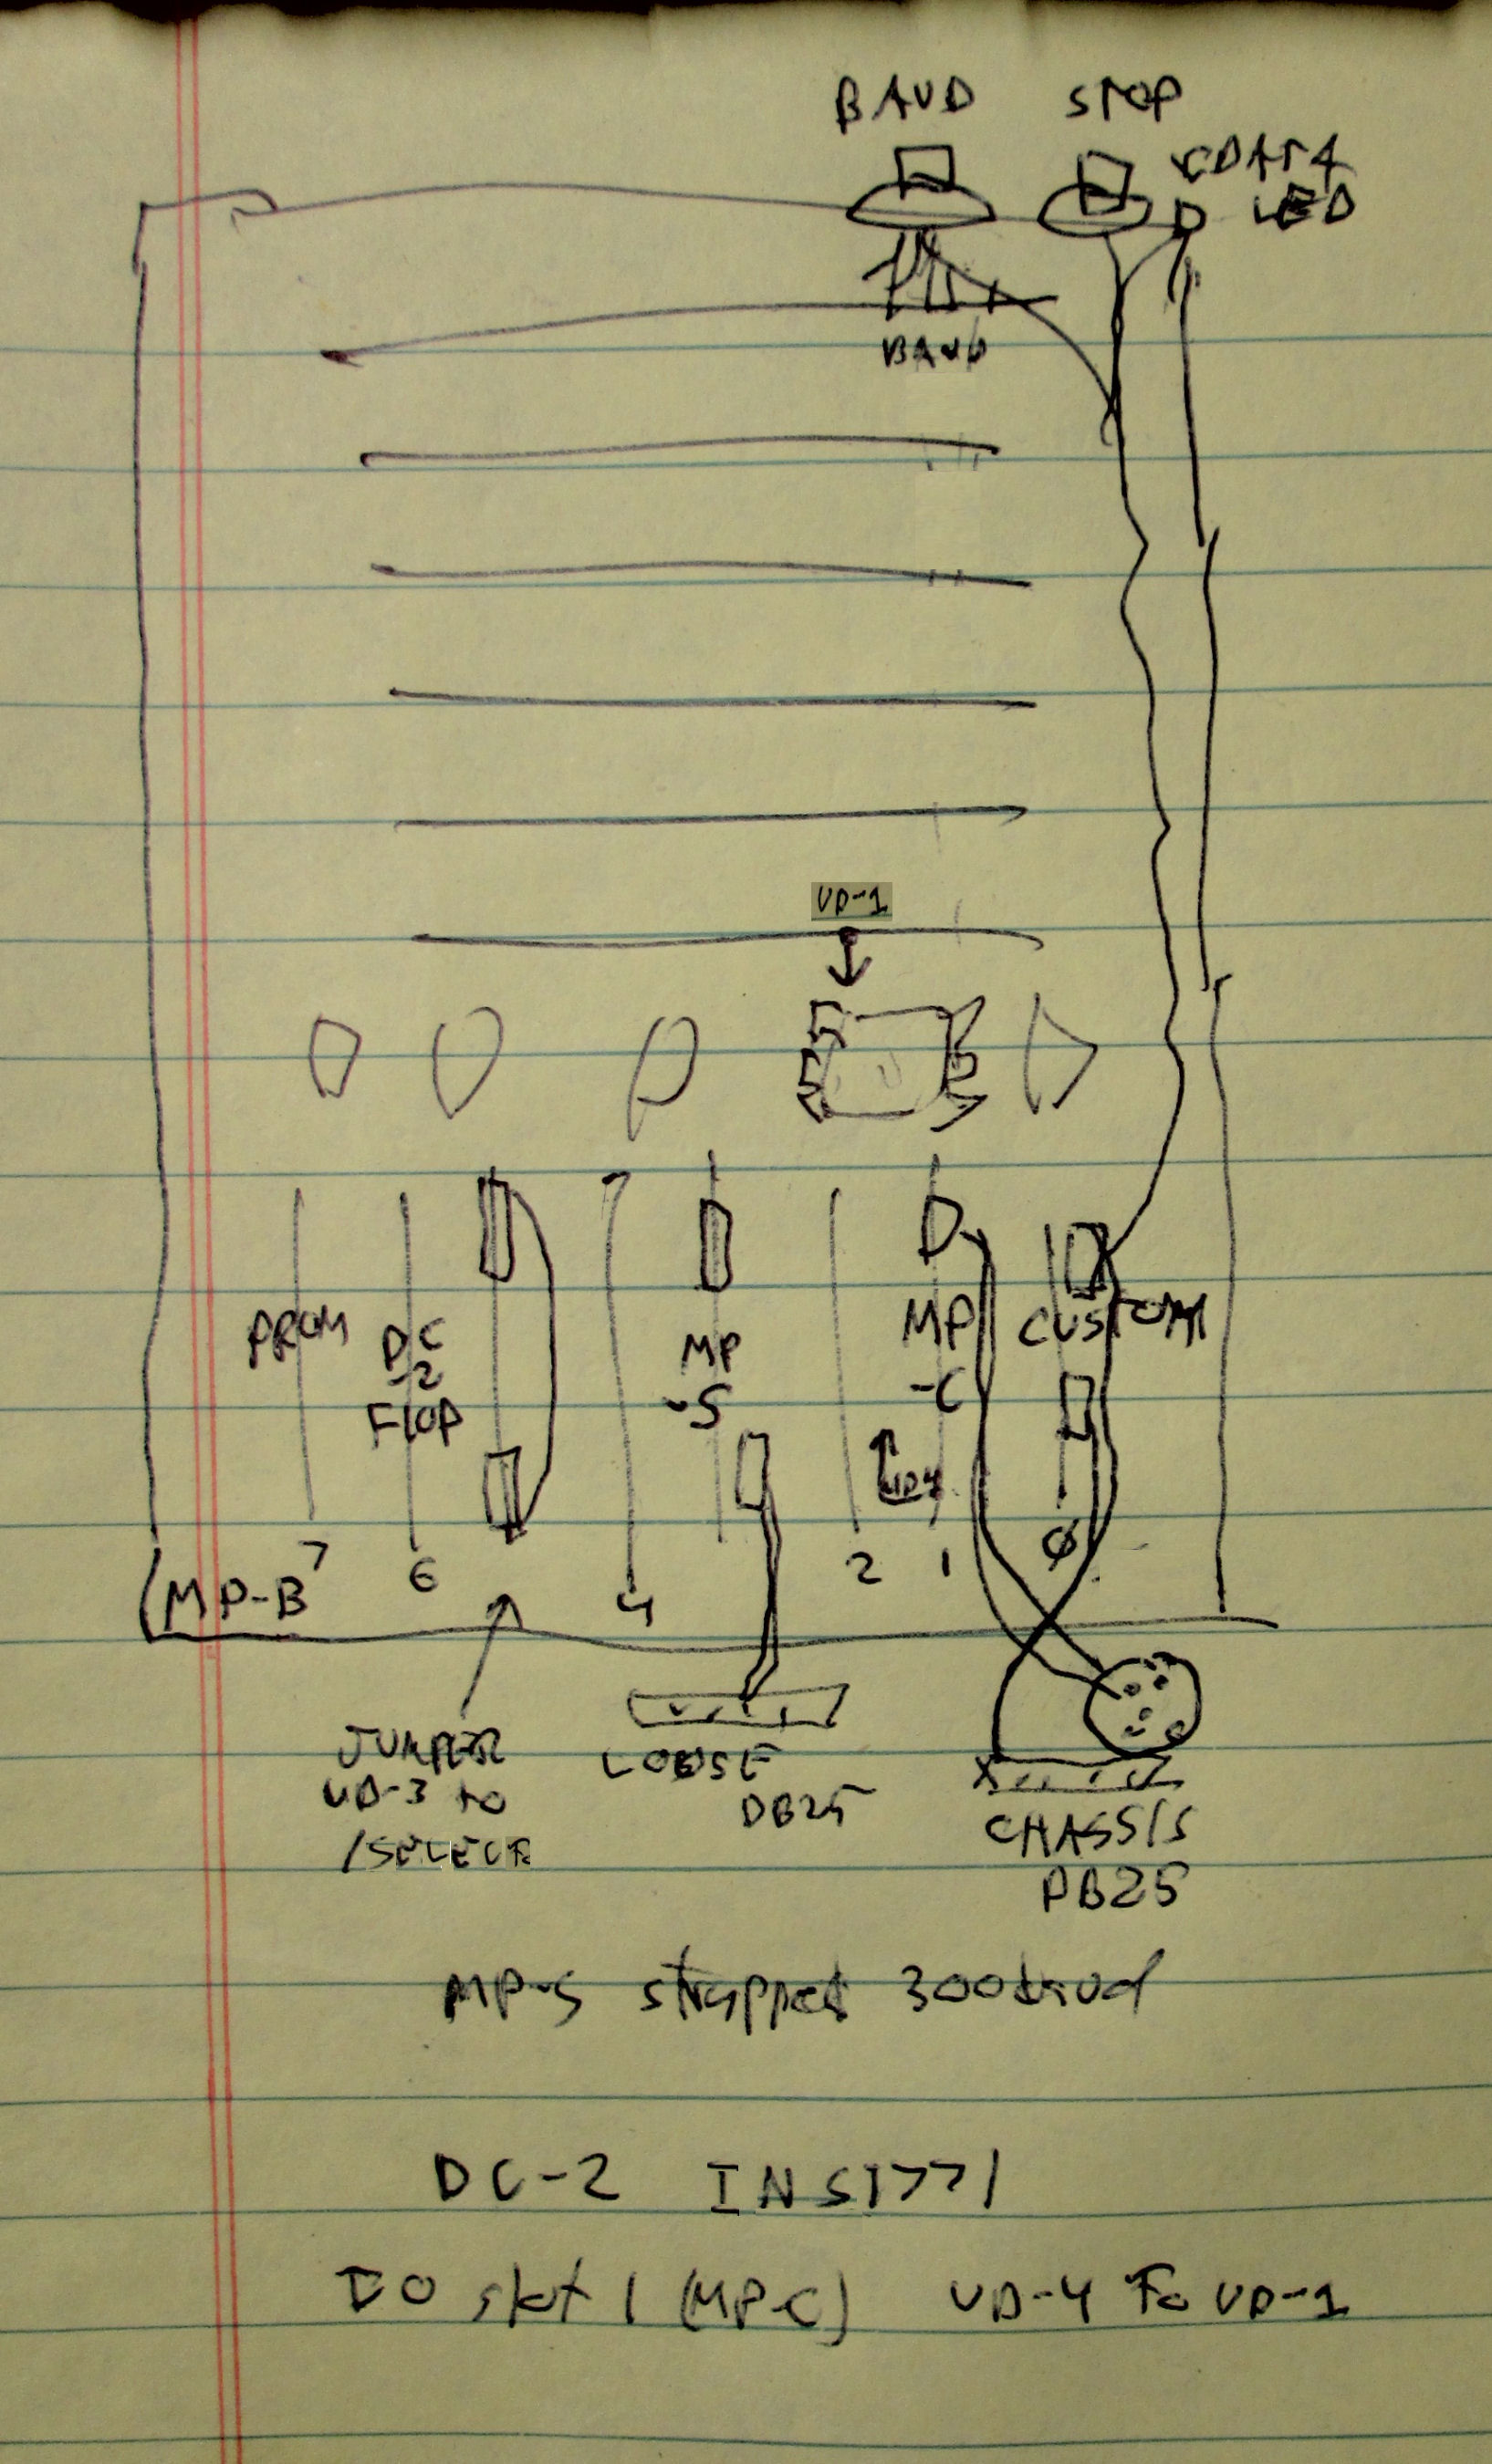 BAUD STOP
DATA
LED
BAUD
UD-1
PROM
DC
-2
FLOP
MP
-S
MP
-C
CUSTOM
UD4
7
6
4
2
1
0
MP-B
JUMPER
UD-3 to
/SELECT
LOOSE
DB25
CHASSIS
DB25
MP-S strapped 300baud
DC-2 INS1771
IO slot 1 (MPC) UD-4 To UD-1